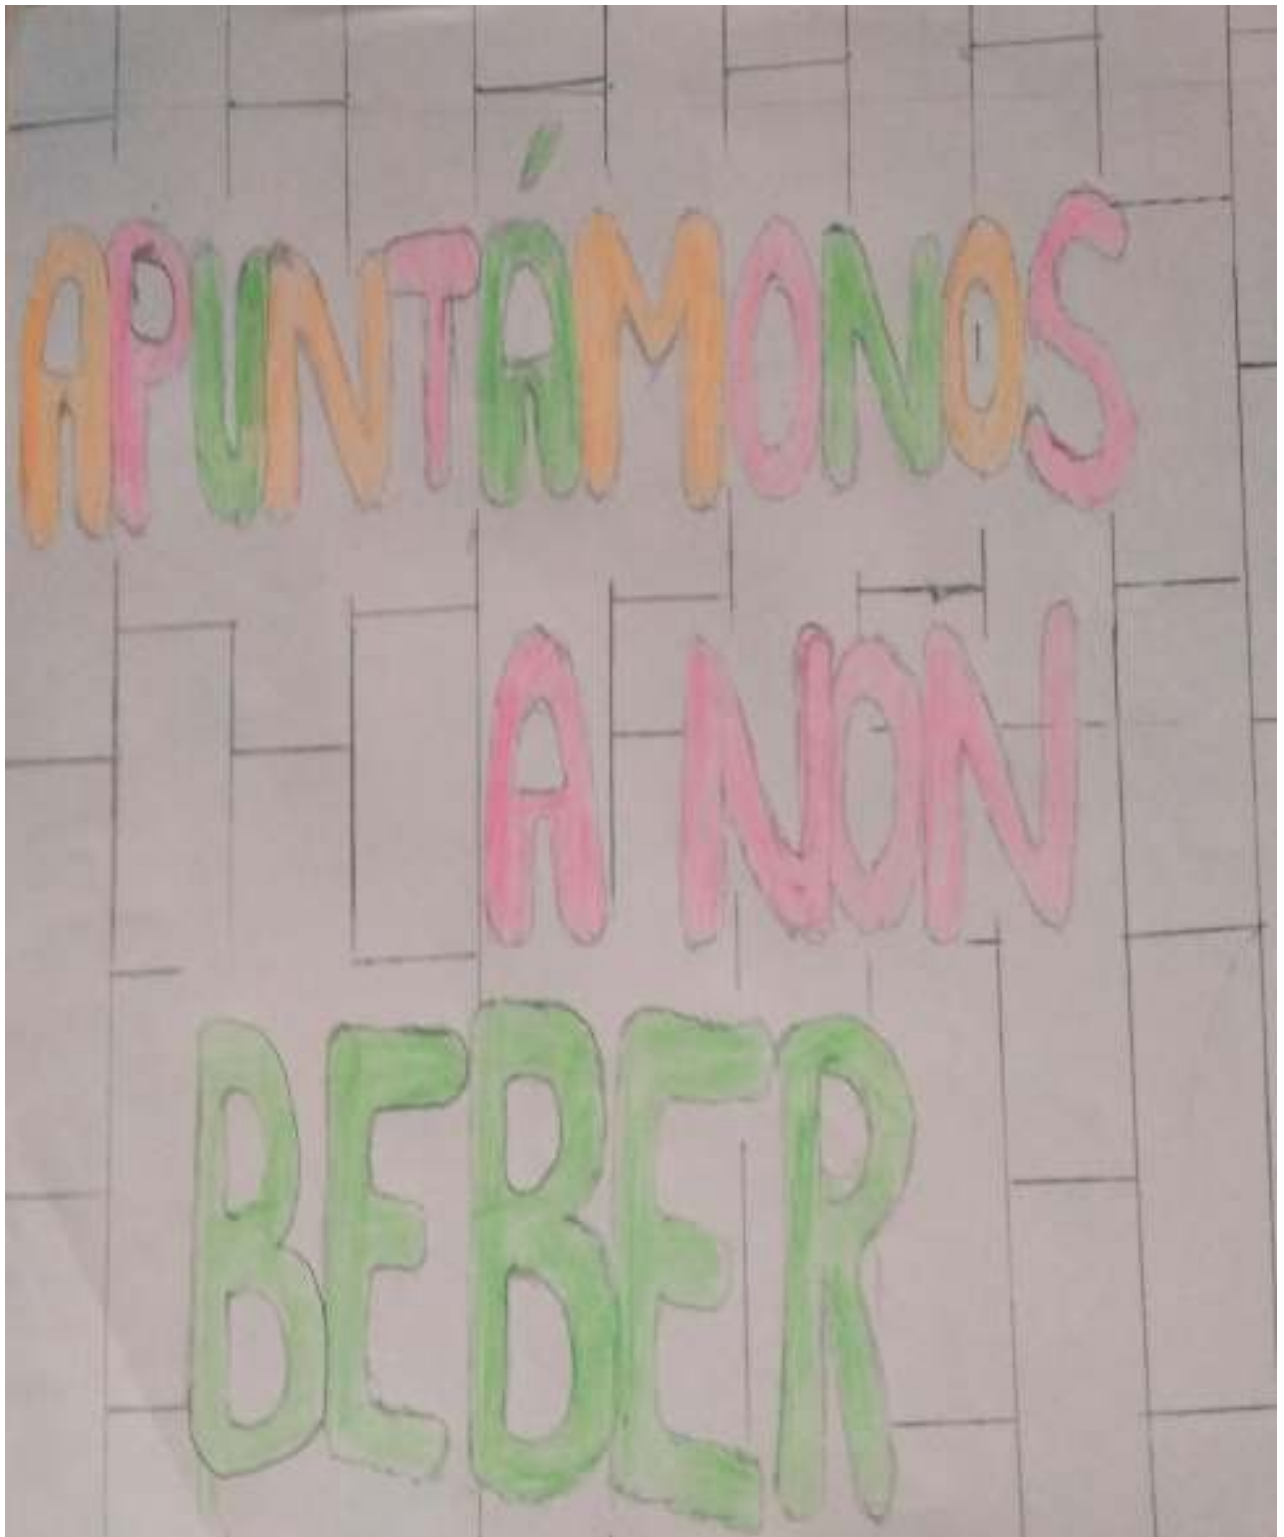 APUNTÁMONOS
A NON
BEBER